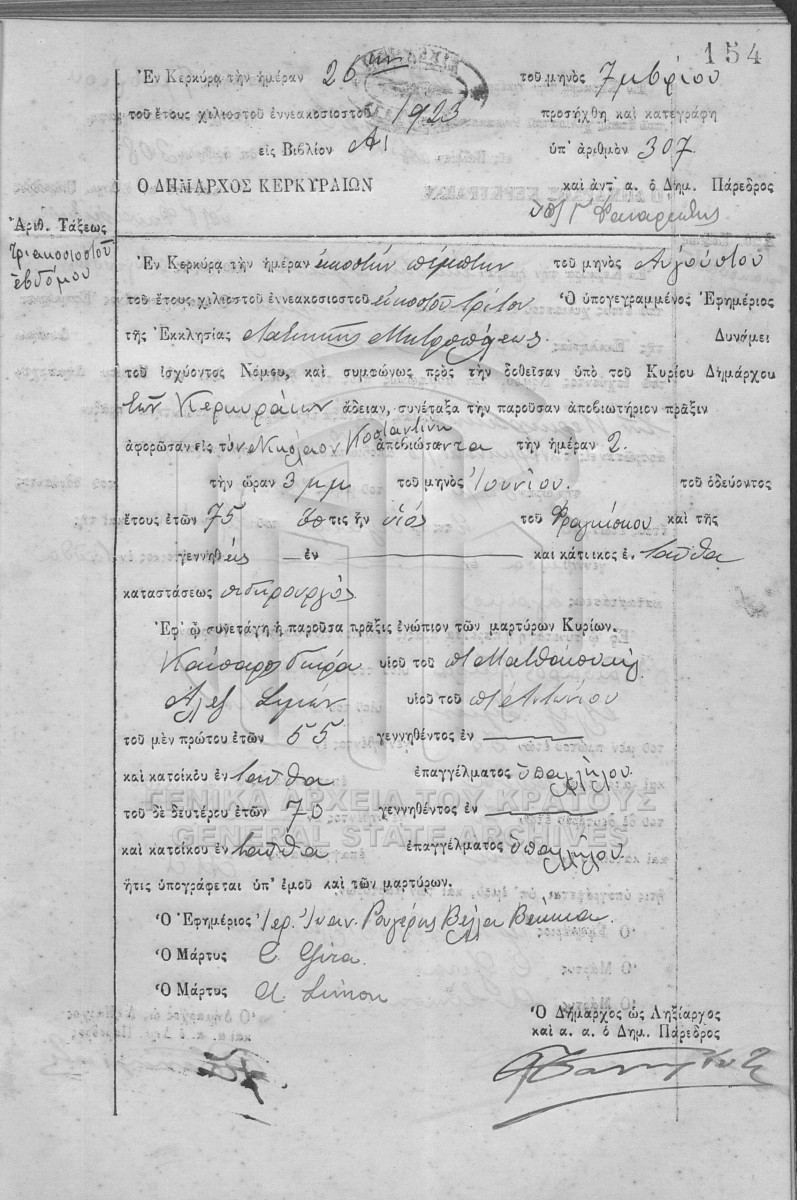 154
Ἐν Κερκύρᾳ τὴν ἡμέραν 26ην τοῦ μηνὸς 7μβρίου
τοῦ ἔτους χιλιοστοῦ ἐννεακοσιοστοῦ 1923 προσήχθη καὶ κατεγράφη
εἰς Βιβλίον Α1 ὑπ' ἀριθμὸν 307
Ο ΔΗΜΑΡΧΟΣ ΚΕΡΚΥΡΑΙΩΝ καὶ ἀντ' α. ὁ Δημ. Πάρεδρος
Ἀριθ. Τάξεως
τριακοσιοστοῦ
ἑβδόμου
Ἐν Κερκύρᾳ τὴν ἡμέραν εἰκοστὴν πέμπτην τοῦ μηνὸς Αὐγούστου
τοῦ ἔτους χιλιοστοῦ ἐννεακοσιοστοῦ εἰκοστοῦ τρίτου Ὁ ὑπογεγραμμένος Ἐφημέριος
τῆς Ἐκκλησίας Λατινικῆς Μητροπόλεως Δυνάμει
τοῦ ἰσχύοντος Νόμου, καὶ συμφώνως πρὸς τὴν δοθεῖσαν ὑπὸ τοῦ Κυρίου Δημάρχου
τῶν Κερκυραίων ἄδειαν, συνέταξα τὴν παροῦσαν ἀποβιωτήριον πρᾶξιν
ἀφορῶσαν εἰς τὸν Νικόλαον Κοσταντίνη ἀποβιώσαντα τὴν ἡμέραν 2.
τὴν ὥραν 3 μμ τοῦ μηνὸς Ἰουνίου. τοῦ ὁδεύοντος
ἔτους ἐτῶν 75 ὅστις ἦν υἱὸς τοῦ Φραγκίσκου καὶ τῆς
γεννηθεὶς — ἐν — καὶ κάτοικος ἐν ταῦθα
καταστάσεως σιδηρουργὸς
Ἐφ' ᾧ συνετάγη ἡ παροῦσα πρᾶξις ἐνώπιον τῶν μαρτύρων Κυρίων.
Καίσαρος Γκίρα υἱοῦ τοῦ
Ἀλεξ Σιμὼν υἱοῦ τοῦ πτ Ἀντωνίου
τοῦ μὲν πρώτου ἐτῶν 55 γεννηθέντος ἐν —
καὶ κατοίκου ἐν ταῦθα ἐπαγγέλματος ὑπαλλήλου
τοῦ δὲ δευτέρου ἐτῶν 70 γεννηθέντος ἐν —
καὶ κατοίκου ἐν ταῦθα ἐπαγγέλματος ὑπαλλήλου
ἥτις ὑπογράφεται ὑπ' ἐμοῦ καὶ τῶν μαρτύρων.
Ὁ Ἐφημέριος Ἱερ. Ἰωαν. Ρουγέρης Βέλλα
Ὁ Μάρτυς C Gira
Ὁ Μάρτυς A Simon
Ὁ Δήμαρχος ὡς Ληξίαρχος
καὶ α. α. ὁ Δημ. Πάρεδρος
ΓΕΝΙΚΑ ΑΡΧΕΙΑ ΤΟΥ ΚΡΑΤΟΥΣ
GENERAL STATE ARCHIVES